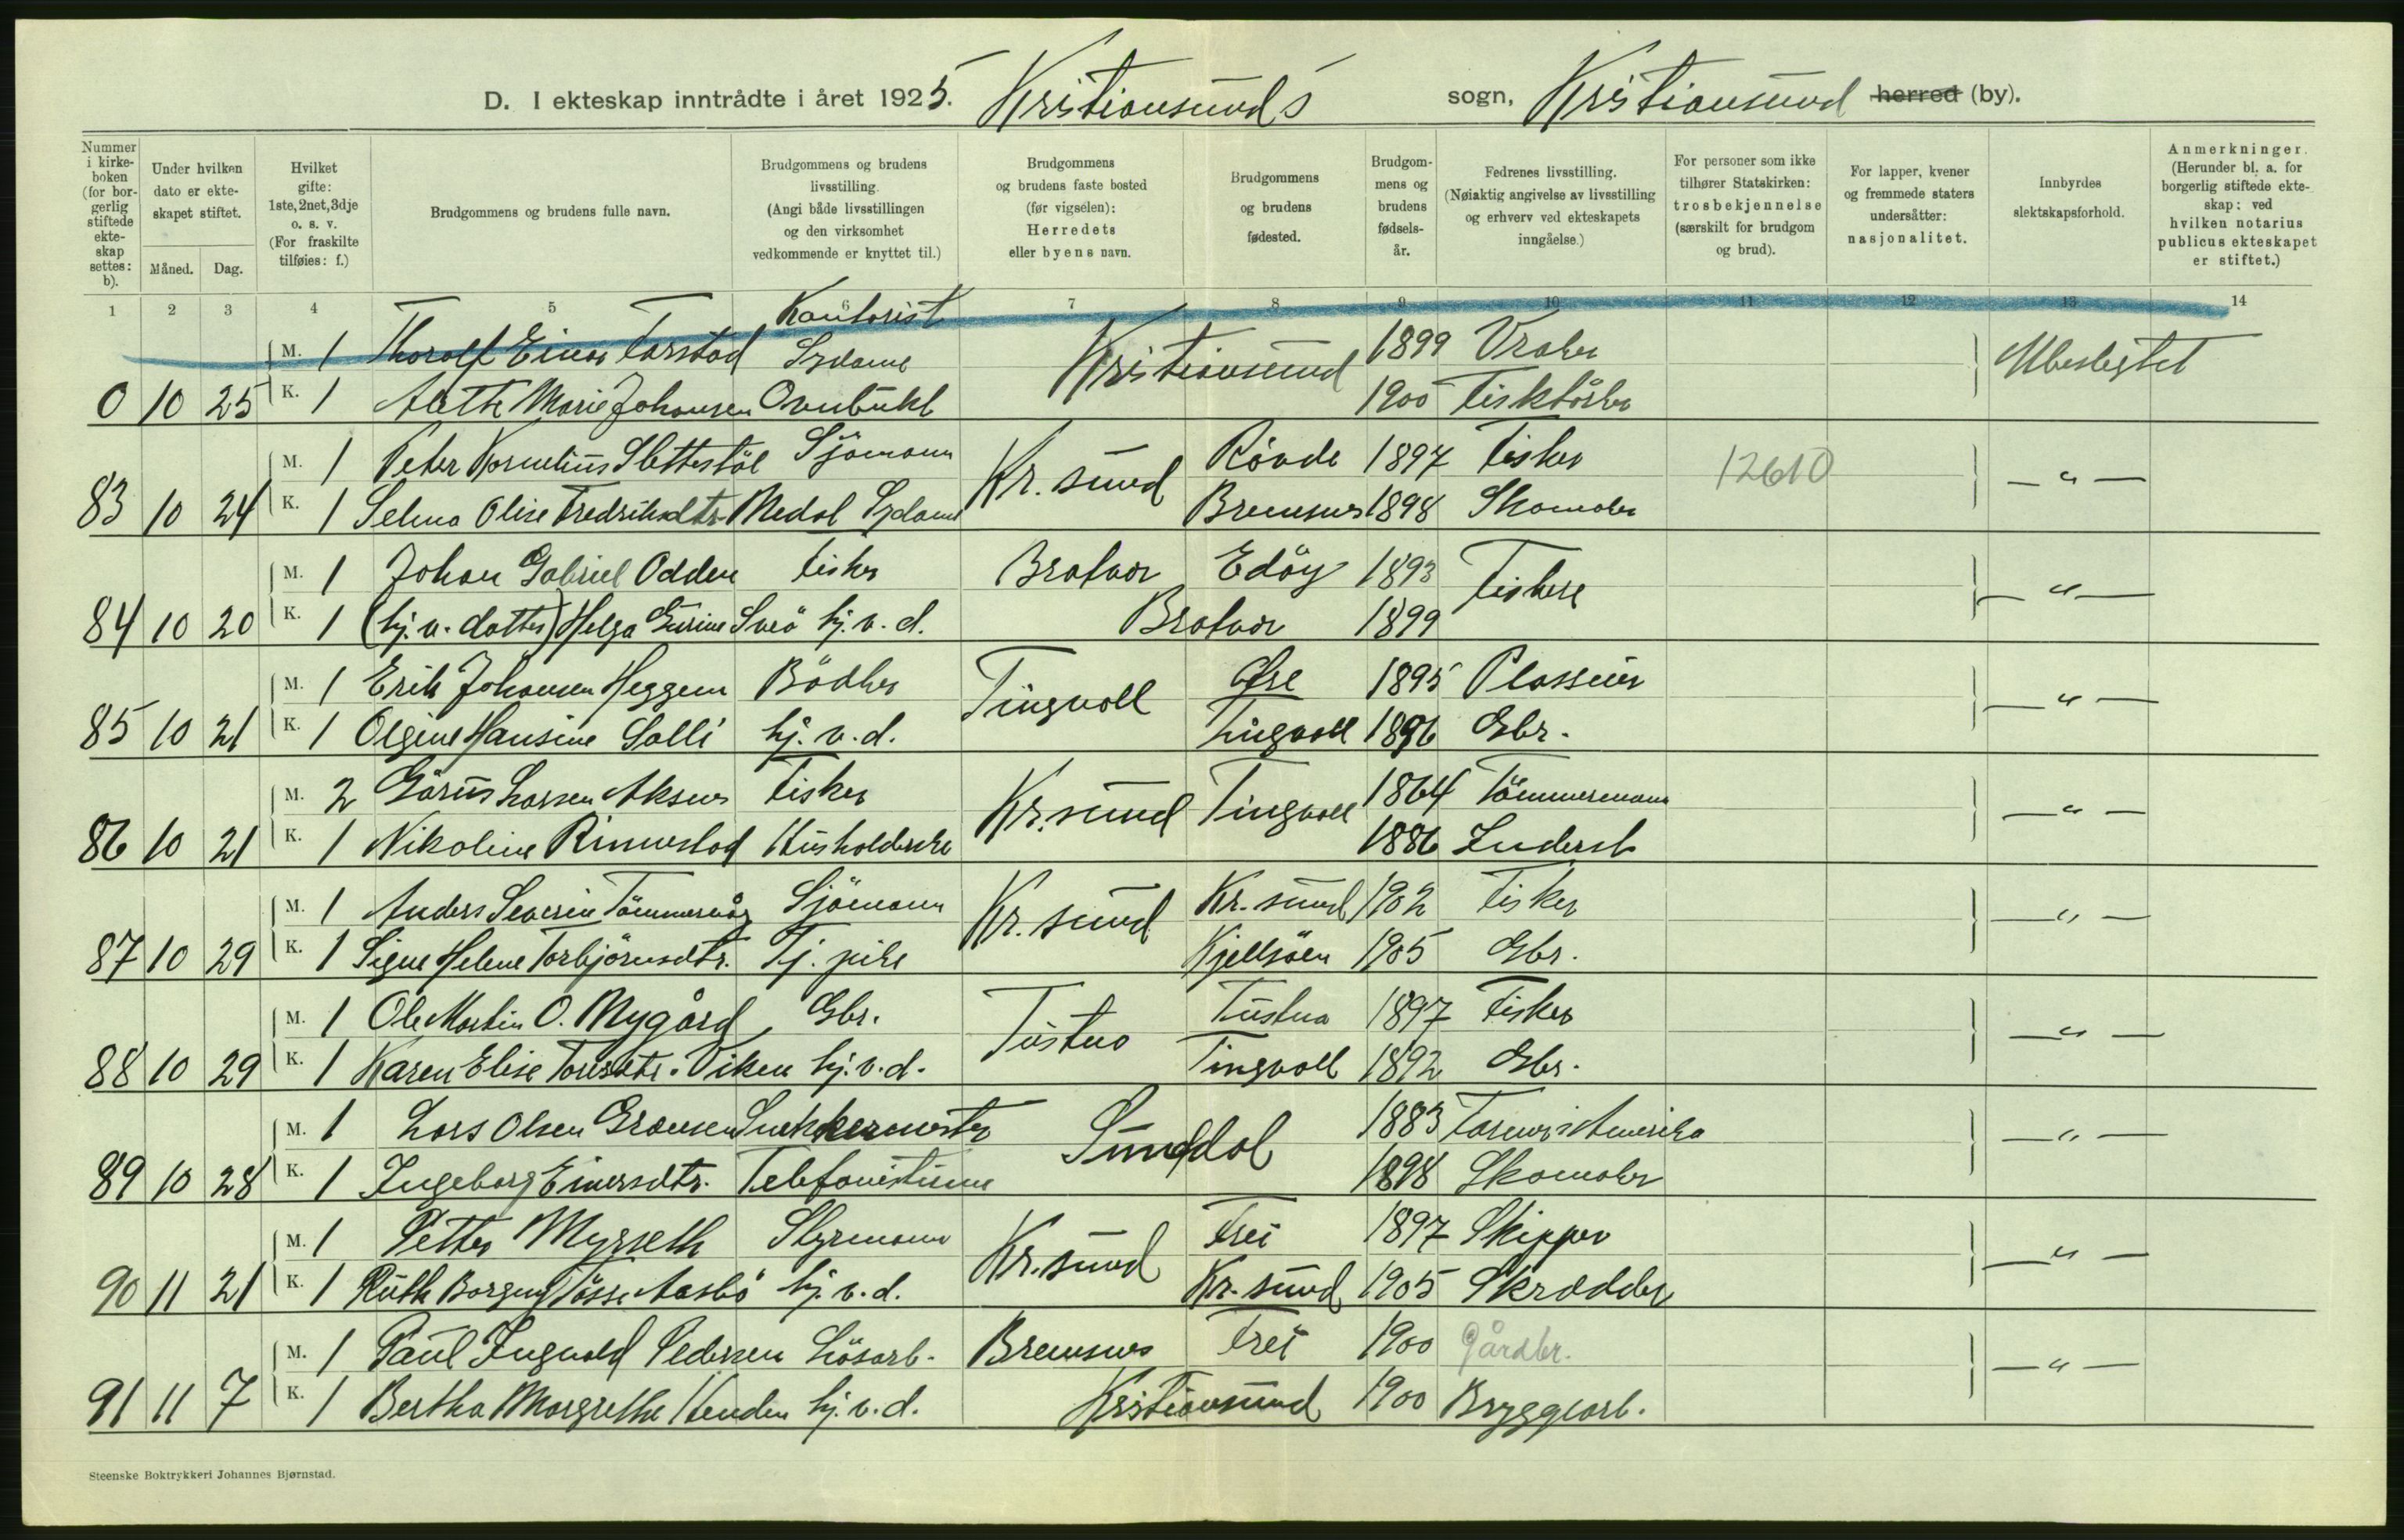 D. I ekteskap inntrådte i året 1925. Kristiansunds sogn, Kristiansund herred (by).
Nummer i kirkeboken (for borgerlig stiftede ekteskap settes: b).
Under hvilken dato er ekteskapet stiftet.
Måned. Dag.
Hvilket gifte: 1ste, 2net, 3dje o. s. v. (For fraskilte tilføies: f.)
Brudgommens og brudens fulle navn.
Brudgommens og brudens livsstilling. (Angi både livsstillingen og den virksomhet vedkommende er knyttet til.)
Brudgommens og brudens faste bosted (før vigselen): Herredets eller byens navn.
Brudgommens og brudens fødested.
Brudgommens og brudens fødselsår.
Fedrenes livsstilling. (Nøiaktig angivelse av livsstilling og erhverv ved ekteskapets inngåelse.)
For personer som ikke tilhører Statskirken: trosbekjennelse (særskilt for brudgom og brud).
For lapper, kvener og fremmede staters undersåtter: nasjonalitet.
Innbyrdes slektskapsforhold.
Anmerkninger. (Herunder bl. a. for borgerlig stiftede ekteskap: ved hvilken notarius publicus ekteskapet er stiftet.)
1 2 3 4 5 6 7 8 9 10 11 12 13 14
M. 1 Thorolf Einar Torstad Kontorist Kristiansund 1899 Vraker Ubeslegtet
0 10 25 K. 1 Aleth Marie Johansen Sydame 1900 Fisktörker
M. 1 Peter Kornelius Slettestöl Sjömann Kr. sund Rövde 1897 Fisker 12610 — " —
83 10 24 K. 1 Selma Olise Fredriksdtr. Medal Sydame Bremsnes 1898 Skomaker
M. 1 Johan Gabriel Odden Fisker Bratvær Edöy 1893 Fiskere — " —
84 10 20 K. 1 (hj. v. datter) Helga Gurine Sveö hj. v. d. Bratvær 1899
M. 1 Erik Johansen Heggem Bödker Tingvoll Öre 1895 Plasseier — " —
85 10 21 K. 1 Olgine Hansine Solli hj. v. d. Tingvoll 1896 Gbr.
M. 2 Larsen Aksnes Fisker Kr. sund Tingvoll 1864 Tömmermann — " —
86 10 21 K. 1 Nikoline Rimmestad Husholderske 1886 Inderst
M. 1 Anders Severin Tömmervåg Sjömann Kr. sund Kr. sund 1902 Fisker — " —
87 10 29 K. 1 Signe Helene Torbjörnsdtr. Tj. pike Kjelsöen 1905 Gbr.
M. 1 Ole Martin O. Nygård Gbr. Tustna Tustna 1897 Fisker — " —
88 10 29 K. 1 Karen Elise Toresdtr. Viken hj. v. d. Tingvoll 1892 Gbr.
M. 1 Lars Olsen Snekkermester Sunddal 1883 Farmer i Amerika — " —
89 10 28 K. 1 Ingeborg Einersdtr. Telefonistinne 1898 Skomaker
M. 1 Petter Myrseth Styrmann Kr. sund Frei 1897 Skipper — " —
90 11 21 K. 1 Ruth Borgny Tösse Aasbö hj. v. d. Kr. sund 1905 Skrædder
M. 1 Paul Ingvald Pedersen Lösarb. Bremsnes Frei 1900 Gårdbr. — " —
91 11 7 K. 1 Bertha Margrethe Henden hj. v. d. Kristiansund 1900 Bryggearb.
Steenske Boktrykkeri Johannes Bjørnstad.